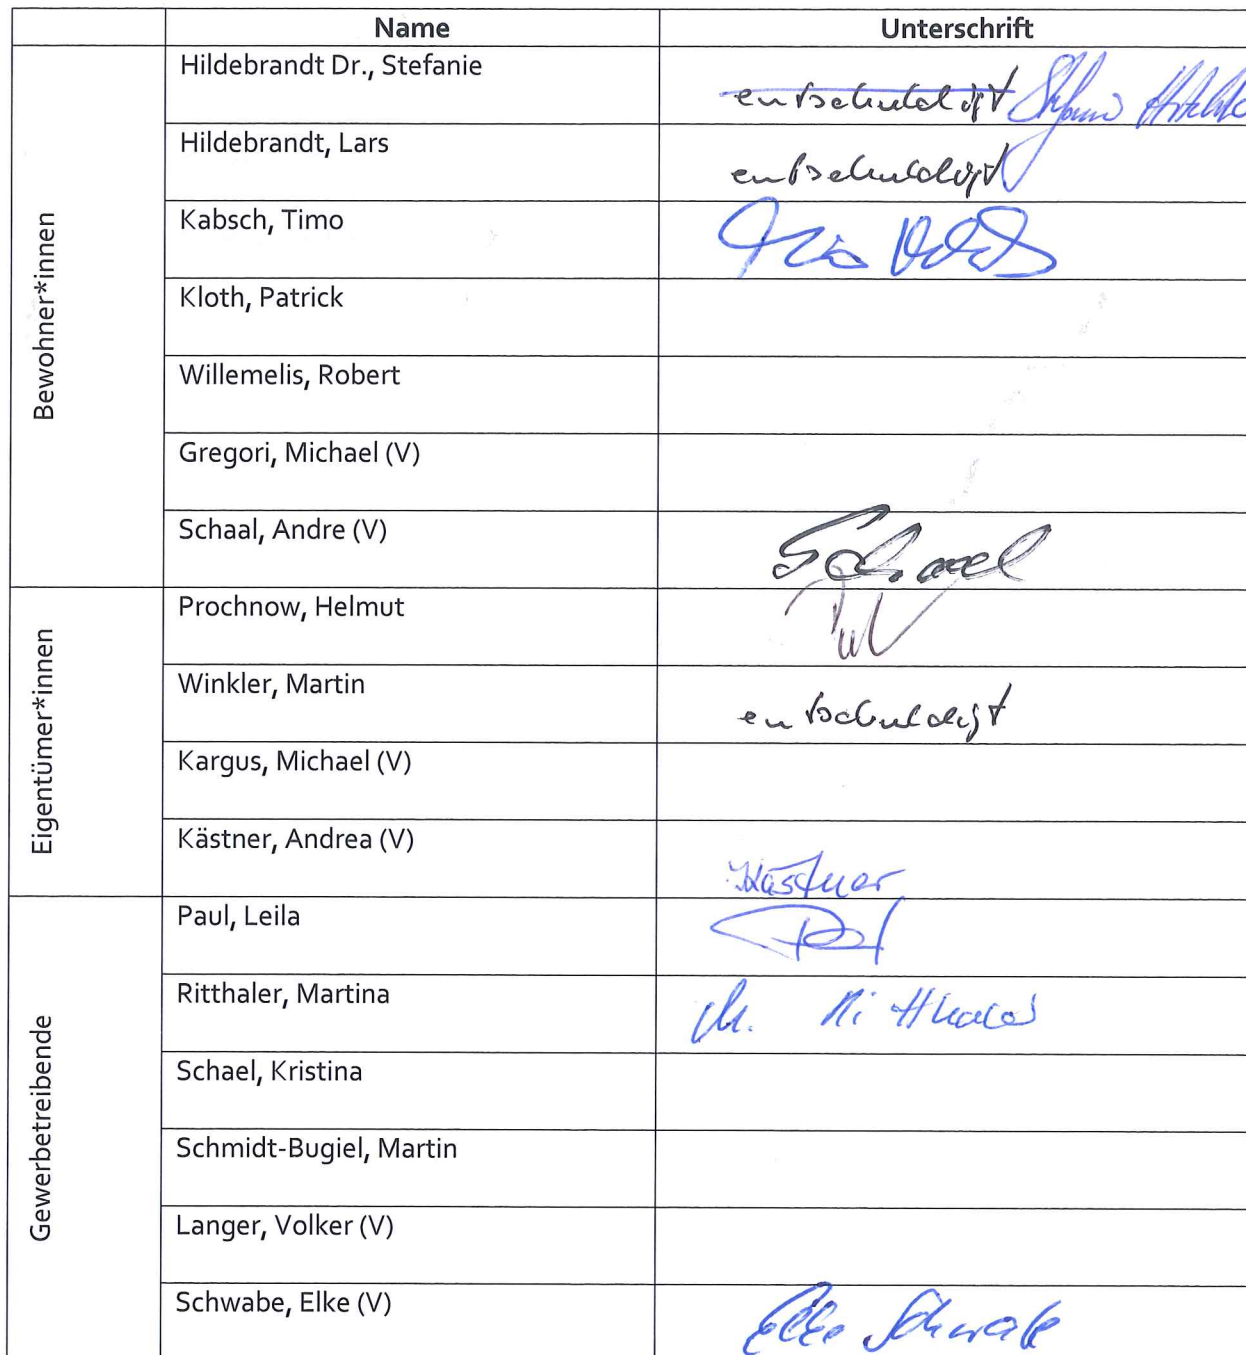 Name Unterschrift
Bewohner*innen
Hildebrandt Dr., Stefanie entschuldigt
Hildebrandt, Lars entschuldigt
Kabsch, Timo
Kloth, Patrick
Willemelis, Robert
Gregori, Michael (V)
Schaal, Andre (V)
Eigentümer*innen
Prochnow, Helmut
Winkler, Martin entschuldigt
Kargus, Michael (V)
Kästner, Andrea (V) Kästner
Gewerbetreibende
Paul, Leila
Ritthaler, Martina M. Ritthaler
Schael, Kristina
Schmidt-Bugiel, Martin
Langer, Volker (V)
Schwabe, Elke (V) Elke Schwabe